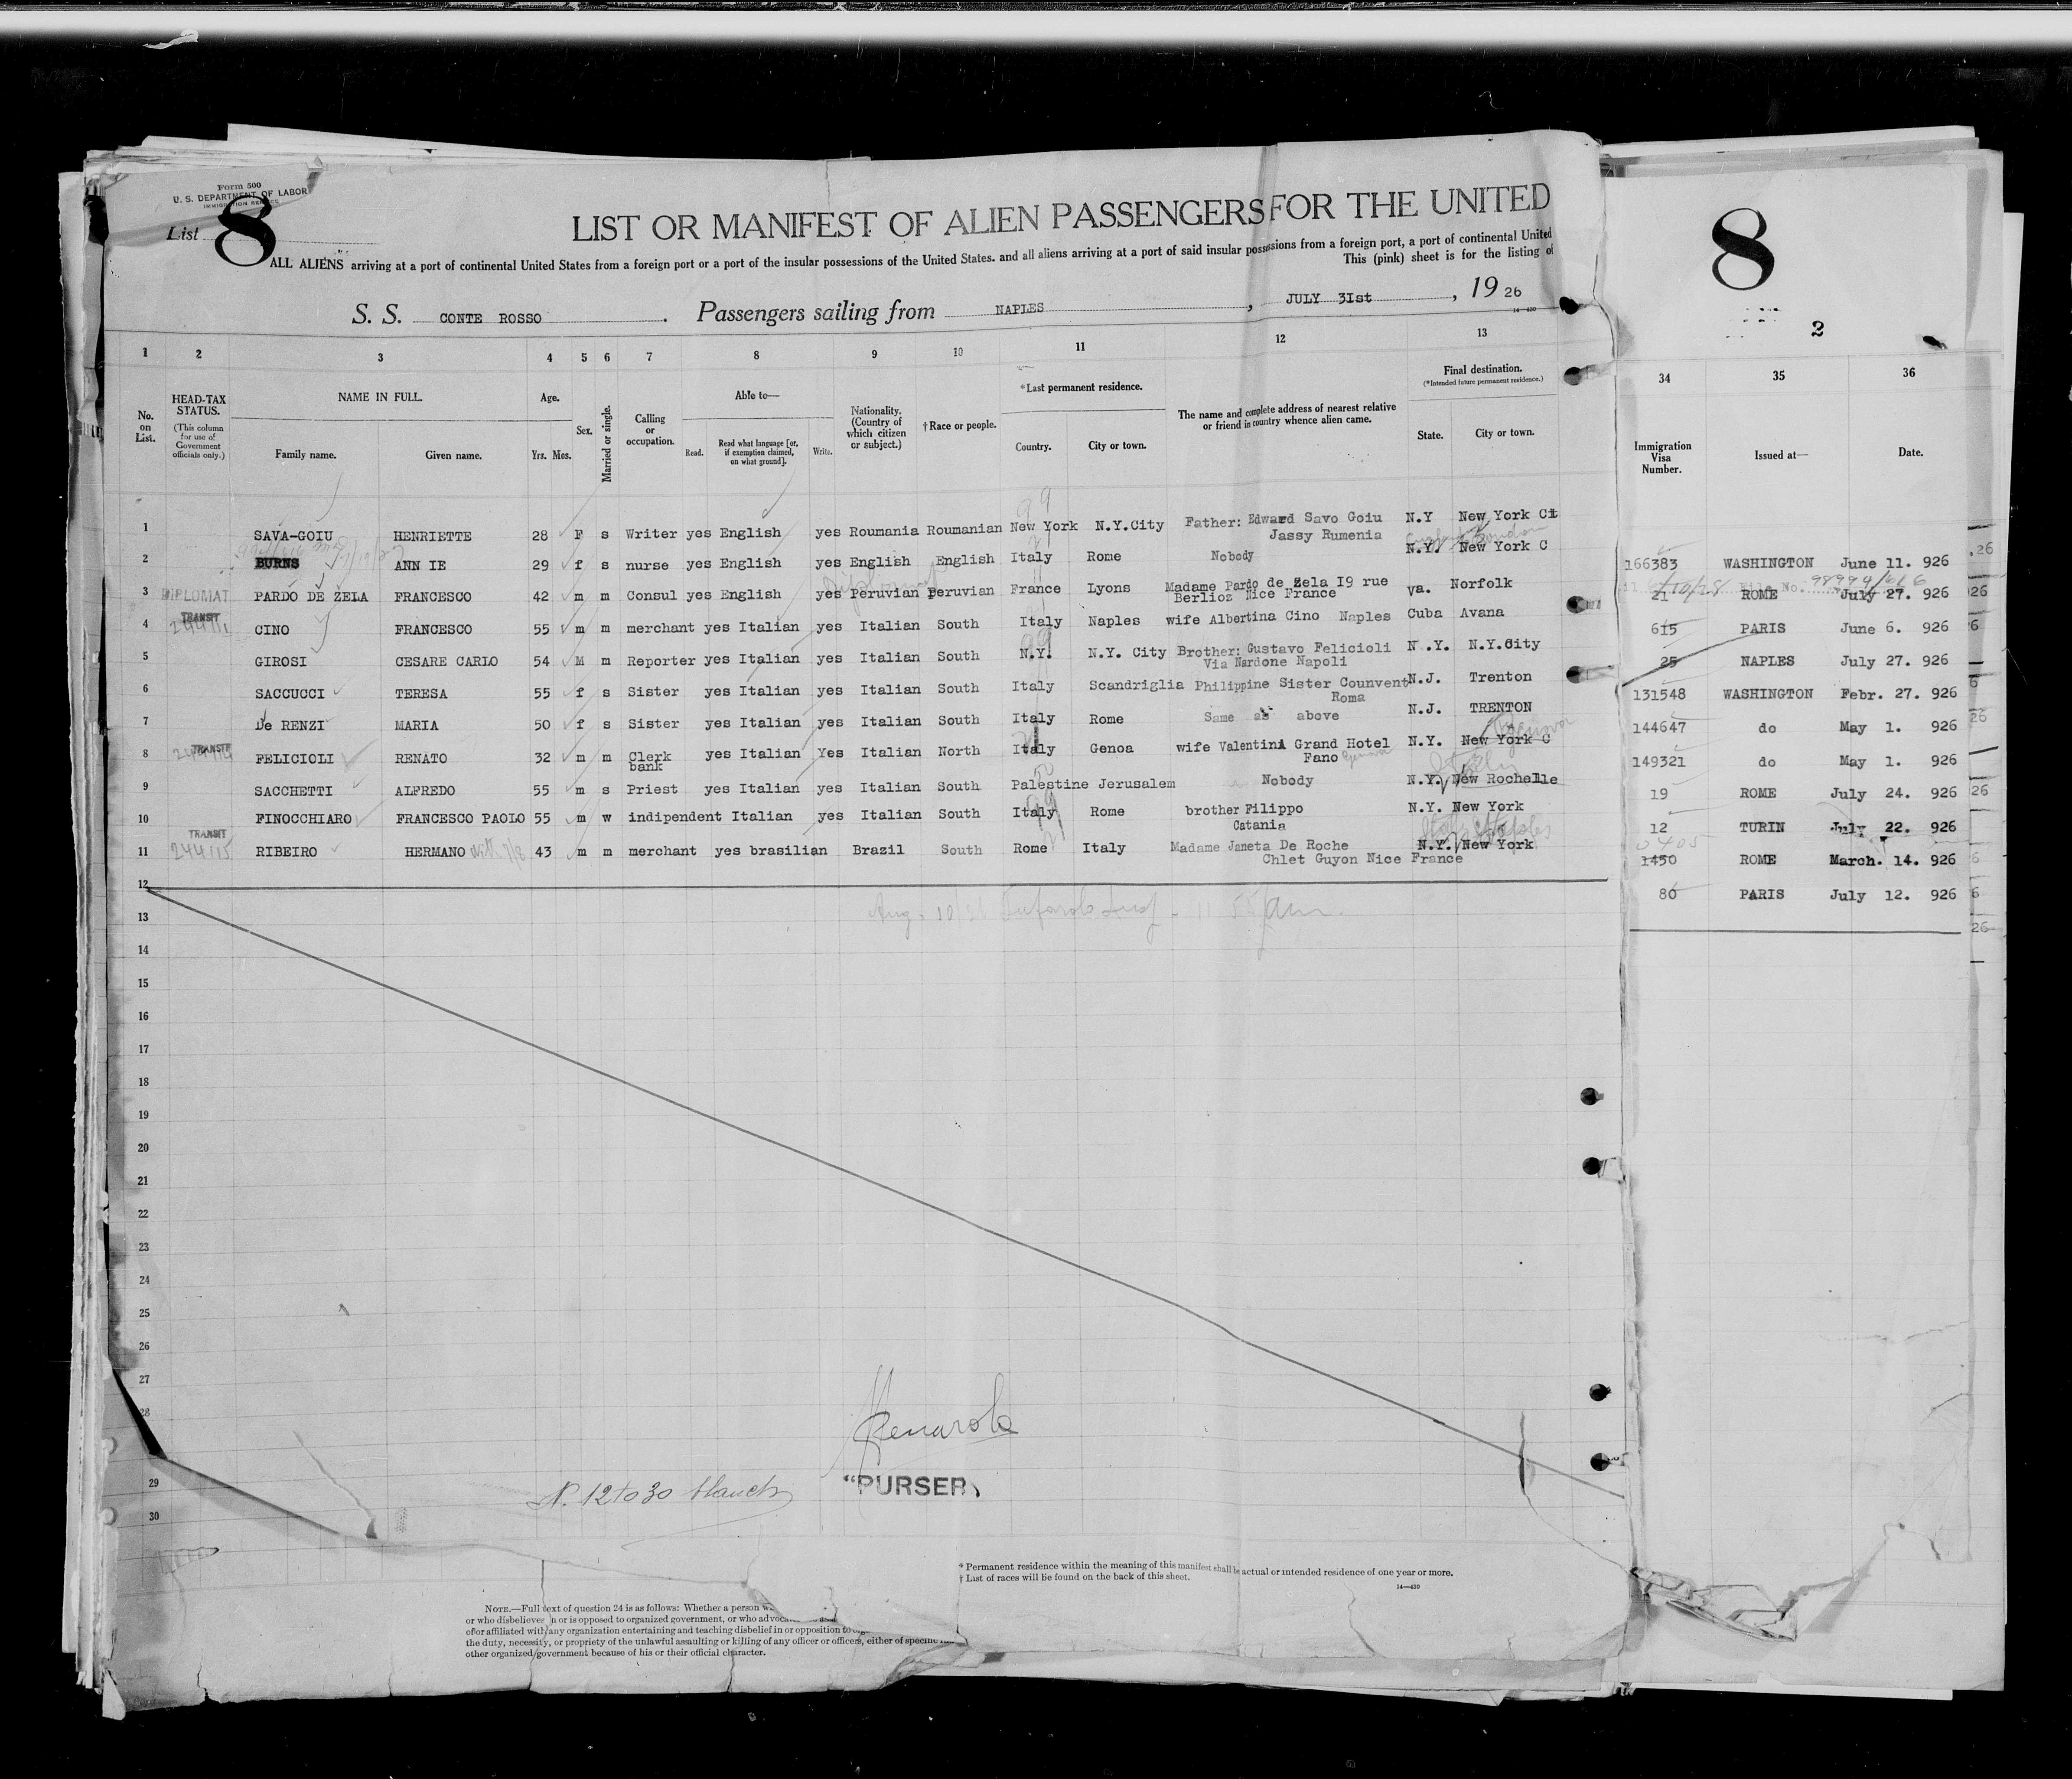 Form 500
U. S. DEPARTMENT OF LABOR
IMMIGRATION SERVICE
List 8
LIST OR MANIFEST OF ALIEN PASSENGERS FOR THE UNITED
ALL ALIENS arriving at a port of continental United States from a foreign port or a port of the insular possessions of the United States, and all aliens arriving at a port of said insular possessions from a foreign port, a port of continental United
This (pink) sheet is for the listing of
S. S. CONTE ROSSO. Passengers sailing from NAPLES, JULY 3Ist, 19 26
14—430
1 2 3 4 5 6 7 8 9 10 11 12 13
No. on List.
HEAD-TAX STATUS.
(This column for use of Government officials only.)
NAME IN FULL.
Family name. Given name.
Age.
Yrs. Mos.
Sex.
Married or single.
Calling or occupation.
Able to—
Read. Read what language [or, if exemption claimed, on what ground]. Write.
Nationality. (Country of which citizen or subject.)
†Race or people.
*Last permanent residence.
Country. City or town.
The name and complete address of nearest relative or friend in country whence alien came.
Final destination.
(*Intended future permanent residence.)
State. City or town.
1 SAVA-GOIU HENRIETTE 28 F s Writer yes English yes Roumania Roumanian New York N.Y.City Father: Edward Savo Goiu Jassy Rumenia N.Y New York Cit
2 BURNS ANN IE 29 f s nurse yes English yes English English Italy Rome Nobody N.Y. New York C
3 DIPLOMAT PARDO DE ZELA FRANCESCO 42 m m Consul yes English yes Peruvian Peruvian France Lyons Madame Pardo de Zela I9 rue Berlioz Nice France Va. Norfolk
4 TRANSIT CINO FRANCESCO 55 m m merchant yes Italian yes Italian South Italy Naples wife Albertina Cino Naples Cuba Avana
5 GIROSI CESARE CARLO 54 M m Reporter yes Italian yes Italian South N.Y. N.Y. City Brother: Gustavo Felicioli Via Nardone Napoli N.Y. N.Y.City
6 SACCUCCI TERESA 55 f s Sister yes Italian yes Italian South Italy Scandriglia Philippine Sister Counvent Roma N.J. Trenton
7 De RENZI MARIA 50 f s Sister yes Italian yes Italian South Italy Rome Same as above N.J. TRENTON
8 TRANSIT FELICIOLI RENATO 32 m m Clerk bank yes Italian Yes Italian North Italy Genoa wife Valentina Grand Hotel Fano N.Y. New York C
9 SACCHETTI ALFREDO 55 m s Priest yes Italian yes Italian South Palestine Jerusalem Nobody N.Y. New Rochelle
10 FINOCCHIARO FRANCESCO PAOLO 55 m w indipendent Italian yes Italian South Italy Rome brother Filippo Catania N.Y. New York
11 TRANSIT 244115 RIBEIRO HERMANO 43 m m merchant yes brasilian Brazil South Rome Italy Madame Janeta De Roche Chlet Guyon Nice France N.Y. New York
12
13
14
15
16
17
18
19
20
21
22
23
24
25
26
27
28
29
30
N. 12 to 30 blanch
"PURSER"
* Permanent residence within the meaning of this manifest shall be actual or intended residence of one year or more.
† List of races will be found on the back of this sheet.
14—430
NOTE.—Full text of question 24 is as follows: Whether a person
or who disbelieves in or is opposed to organized government, or who
of or affiliated with any organization entertaining and teaching disbelief in or opposition to
the duty, necessity, or propriety of the unlawful assaulting or killing of any officer or officers, either of specific
other organized government because of his or their official character.
8
2
34 35 36
Immigration Visa Number. Issued at— Date.
166383 WASHINGTON June 11. 926
21 ROME July 27. 926
615 PARIS June 6. 926
25 NAPLES July 27. 926
131548 WASHINGTON Febr. 27. 926
144647 do May 1. 926
149321 do May 1. 926
19 ROME July 24. 926
12 TURIN July 22. 926
1450 ROME March. 14. 926
80 PARIS July 12. 926